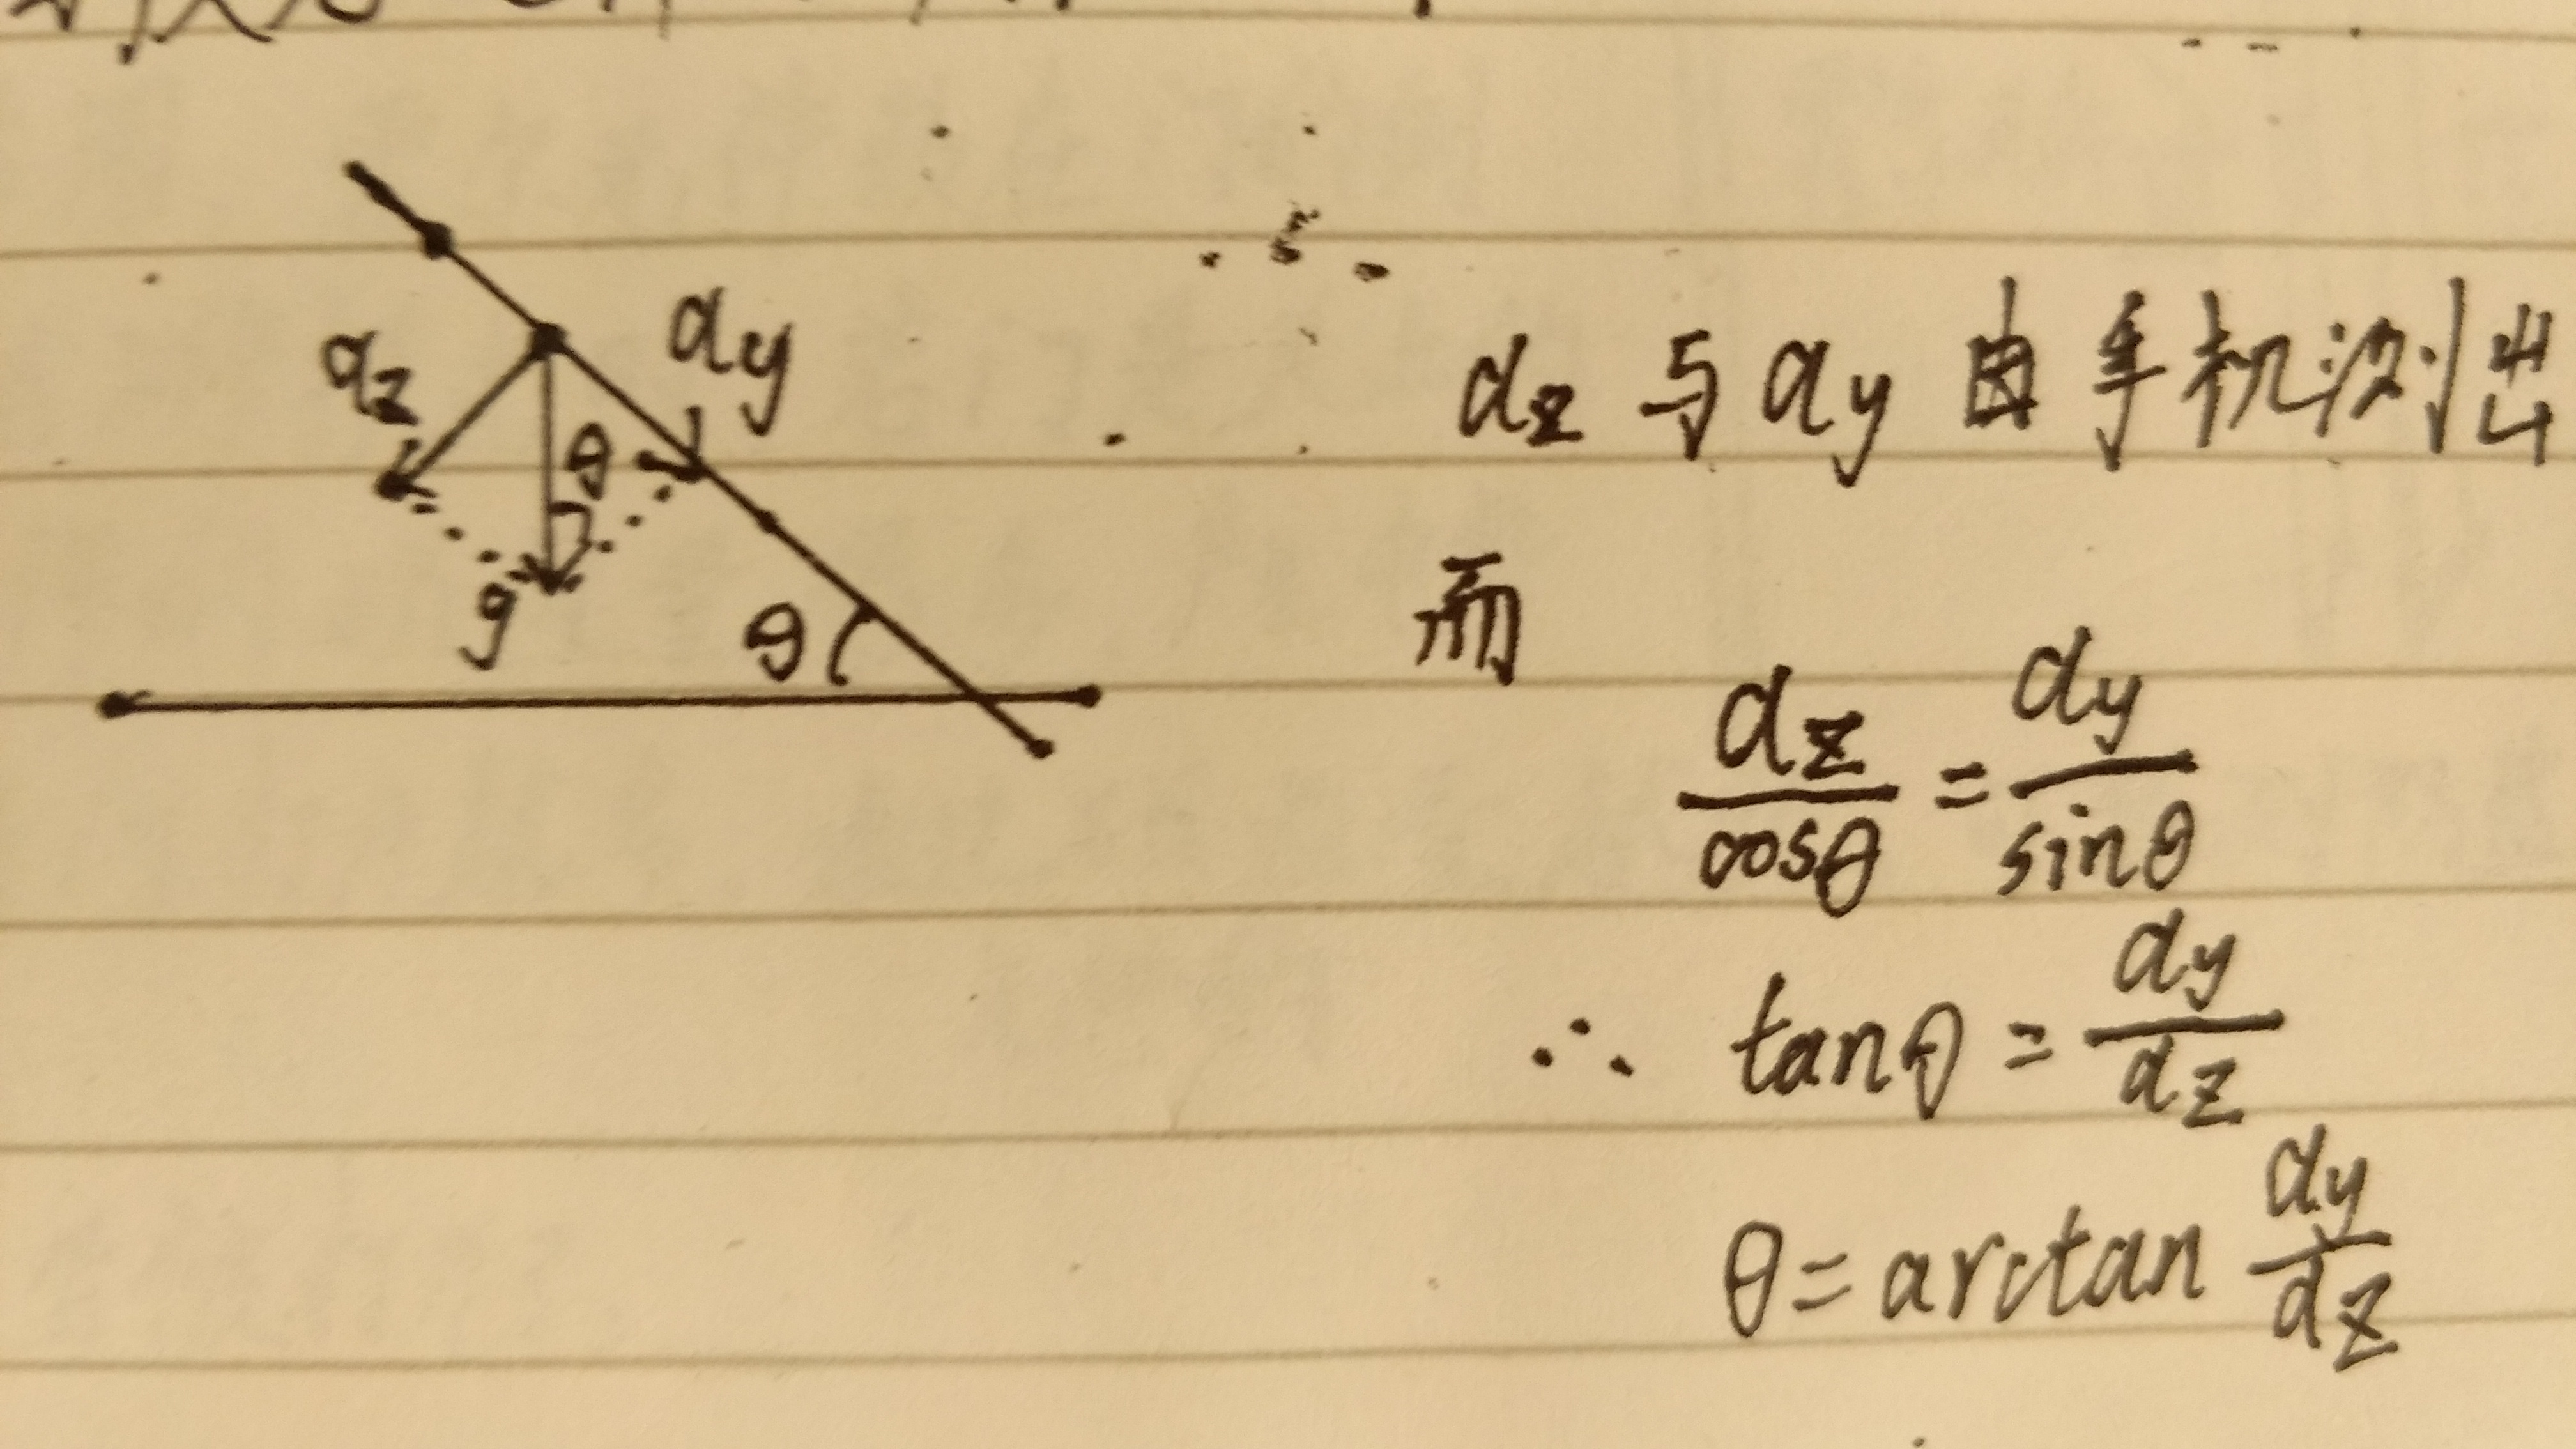 az
ay
θ
g
θ
az 与 ay 由手机测出
而
az/cosθ = ay/sinθ
∴ tanθ = ay/az
θ = arctan ay/az